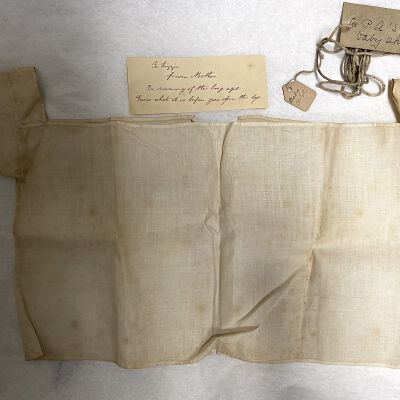 To Lizzie
from Mother
In memory of the long ago
Guess what it is before you open the
P. A.'s
baby